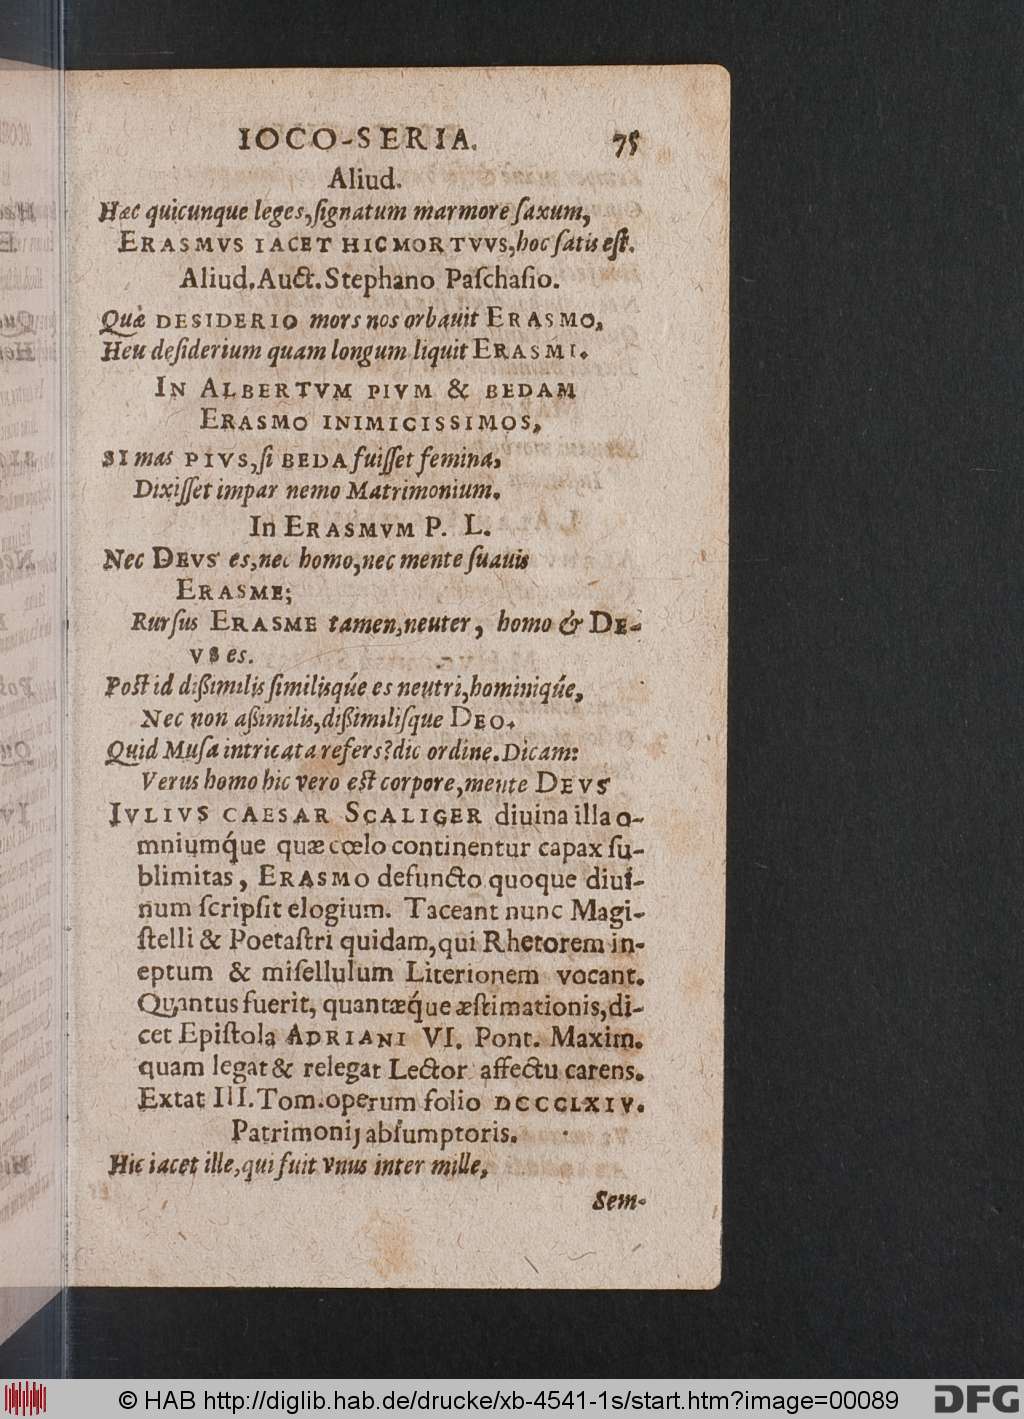 IOCO-SERIA. 75
Aliud.
Hæc quicunque leges, ſignatum marmore ſaxum,
ERASMVS IACET HIC MORTVVS, hoc ſatis eſt.
Aliud. Auct. Stephano Paſchaſio.
Quæ DESIDERIO mors nos orbauit ERASMO,
Heu deſiderium quam longum liquit ERASMI.
IN ALBERTVM PIVM & BEDAM
ERASMO INIMICISSIMOS,
SI mas PIVS, ſi BEDA fuiſſet femina,
Dixiſſet impar nemo Matrimonium.
In ERASMVM P. L.
Nec DEVS es, nec homo, nec mente ſuauis
ERASME;
Rurſus ERASME tamen, neuter, homo & DE-
VS es.
Poſt id dißimilis ſimilisq́ue es neutri, hominiq́ue,
Nec non aßimilis, dißimiliſque DEO.
Quid Muſa intricata refers? dic ordine. Dicam:
Verus homo hic vero eſt corpore, mente DEVS
IVLIVS CAESAR SCALIGER diuina illa o-
mniumq́ue quæ cœlo continentur capax ſu-
blimitas, ERASMO defuncto quoque diui-
num ſcripſit elogium. Taceant nunc Magi-
ſtelli & Poetaſtri quidam, qui Rhetorem in-
eptum & miſellulum Literionem vocant.
Quantus fuerit, quantæq́ue æſtimationis, di-
cet Epiſtola ADRIANI VI. Pont. Maxim.
quam legat & relegat Lector affectu carens.
Extat III. Tom. operum folio DCCCLXIV.
Patrimonij abſumptoris.
Hic iacet ille, qui fuit vnus inter mille,
Sem-
© HAB http://diglib.hab.de/drucke/xb-4541-1s/start.htm?image=00089
DFG